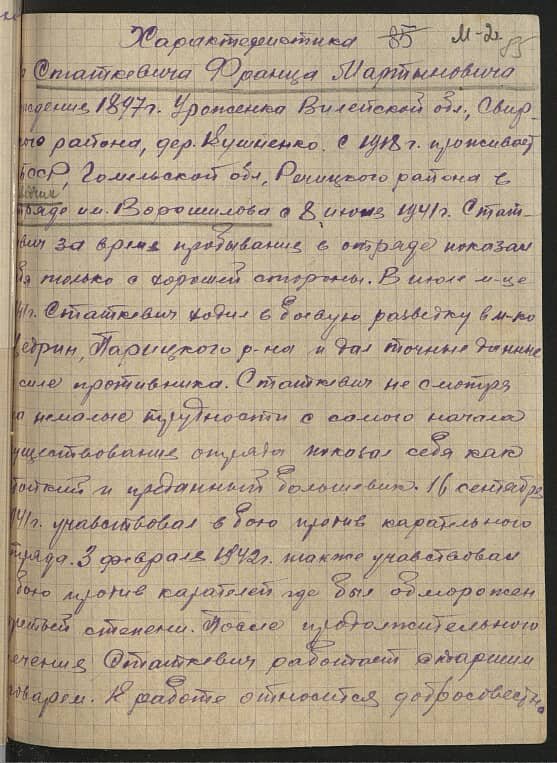 Характеристика 85 М-2 85
Статкевича Франца Мартыновича
рождения 1897г. Уроженка Вилейской обл, Свир-
ного района, дер. Кушненко. С 1918г. проживает
БССР, Гомельской обл, Речицкого района в
отряде им. Ворошилова с 8 июня 1941г. Стат-
кевич за время пробывание в отряде показал
себя только с хорошей стороны. В июле м-це
1941г. Статкевич ходил в боевую разведку в м-ко
Щедрин, Парицкого р-на и дал точные данные
силе противника. Статкевич не смотря
на немалые трудности с самого начала
существование отряда показал себя как
стойкий и преданный большевик. 16 сентября
1941г. учавствовал в бою против карательного
отряда. 3 февраля 1942г. также учавствовал
бою против карателей где был обморожен
третьей степени. После продолжительного
лечения Статкевич работает старшим
поваром. К работе относится добросовестно